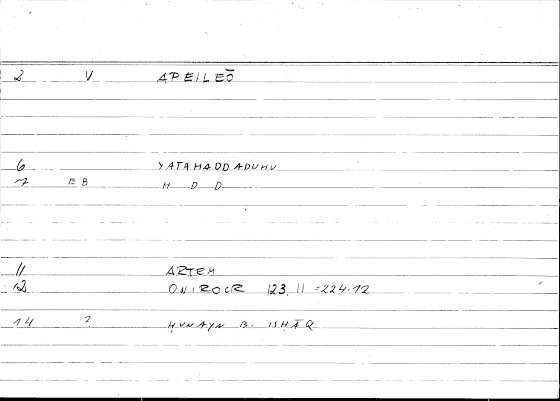 2 V APEILEŌ
6 YATAHADDADUHU
7 EB H D D
11 ARTEM
12 ONIROCR 123,11 = 224.12
14 ? ḤUNAYN B. ISḤĀQ